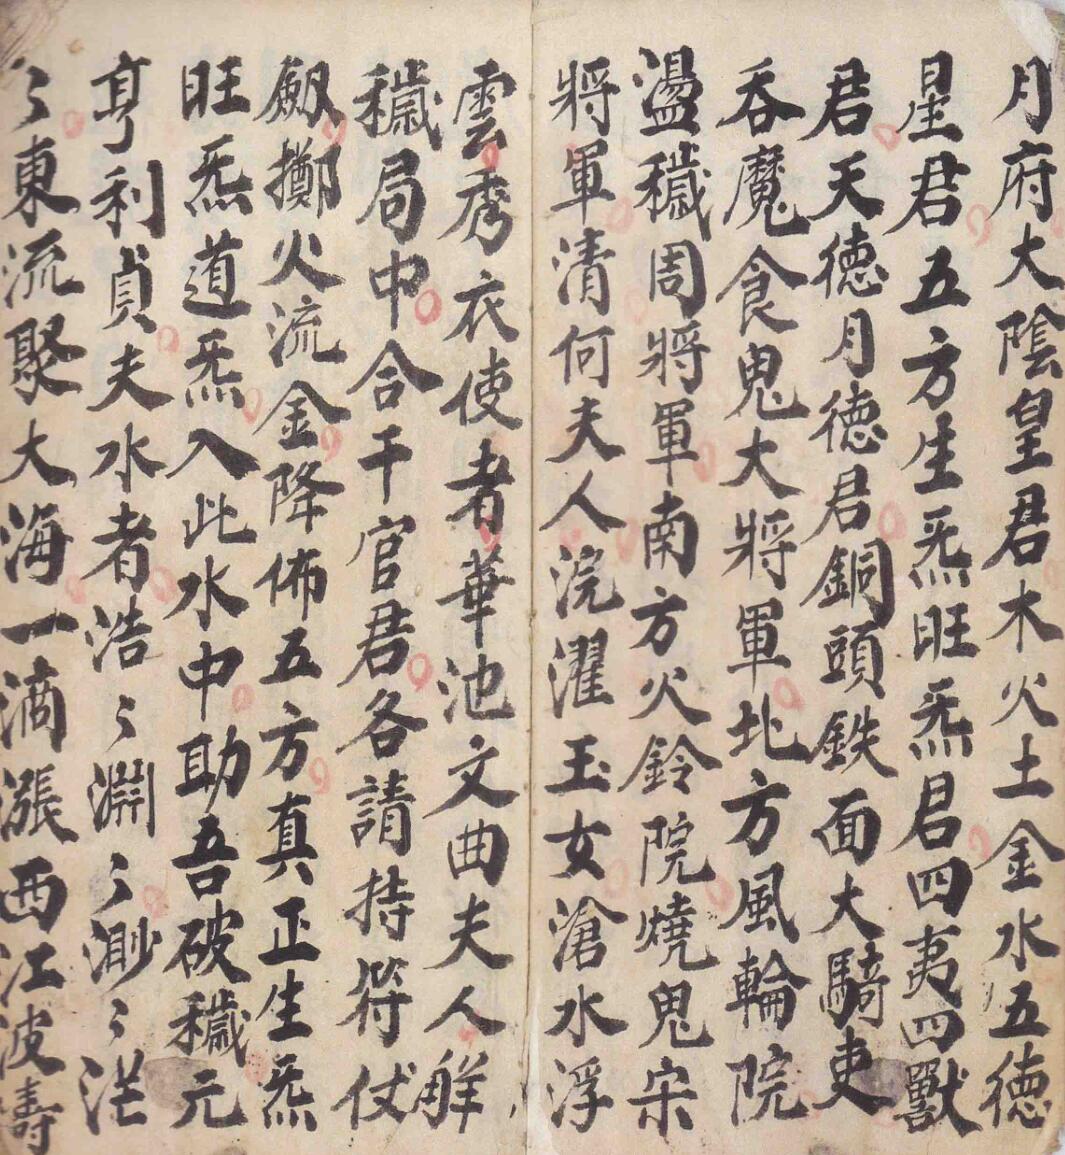 月府大陰皇君木火土金水五德
星君五方生炁旺炁君四夷四獸
君天德月德君銅頭鉄面大騎吏
吞魔食鬼大將軍北方風輪院
盪穢周將軍南方火鈴院燒鬼宋
將軍清何夫人浣濯玉女滄水浮
雲秀衣使者華池文曲夫人觧
穢局中合干官君各請持符仗
劔擲火流金降佈五方真正生炁
旺炁道炁入此水中助吾破穢元
亨利貞夫水者浩〻淵〻渺〻茫
〻東流聚大海一滴漲西江波濤